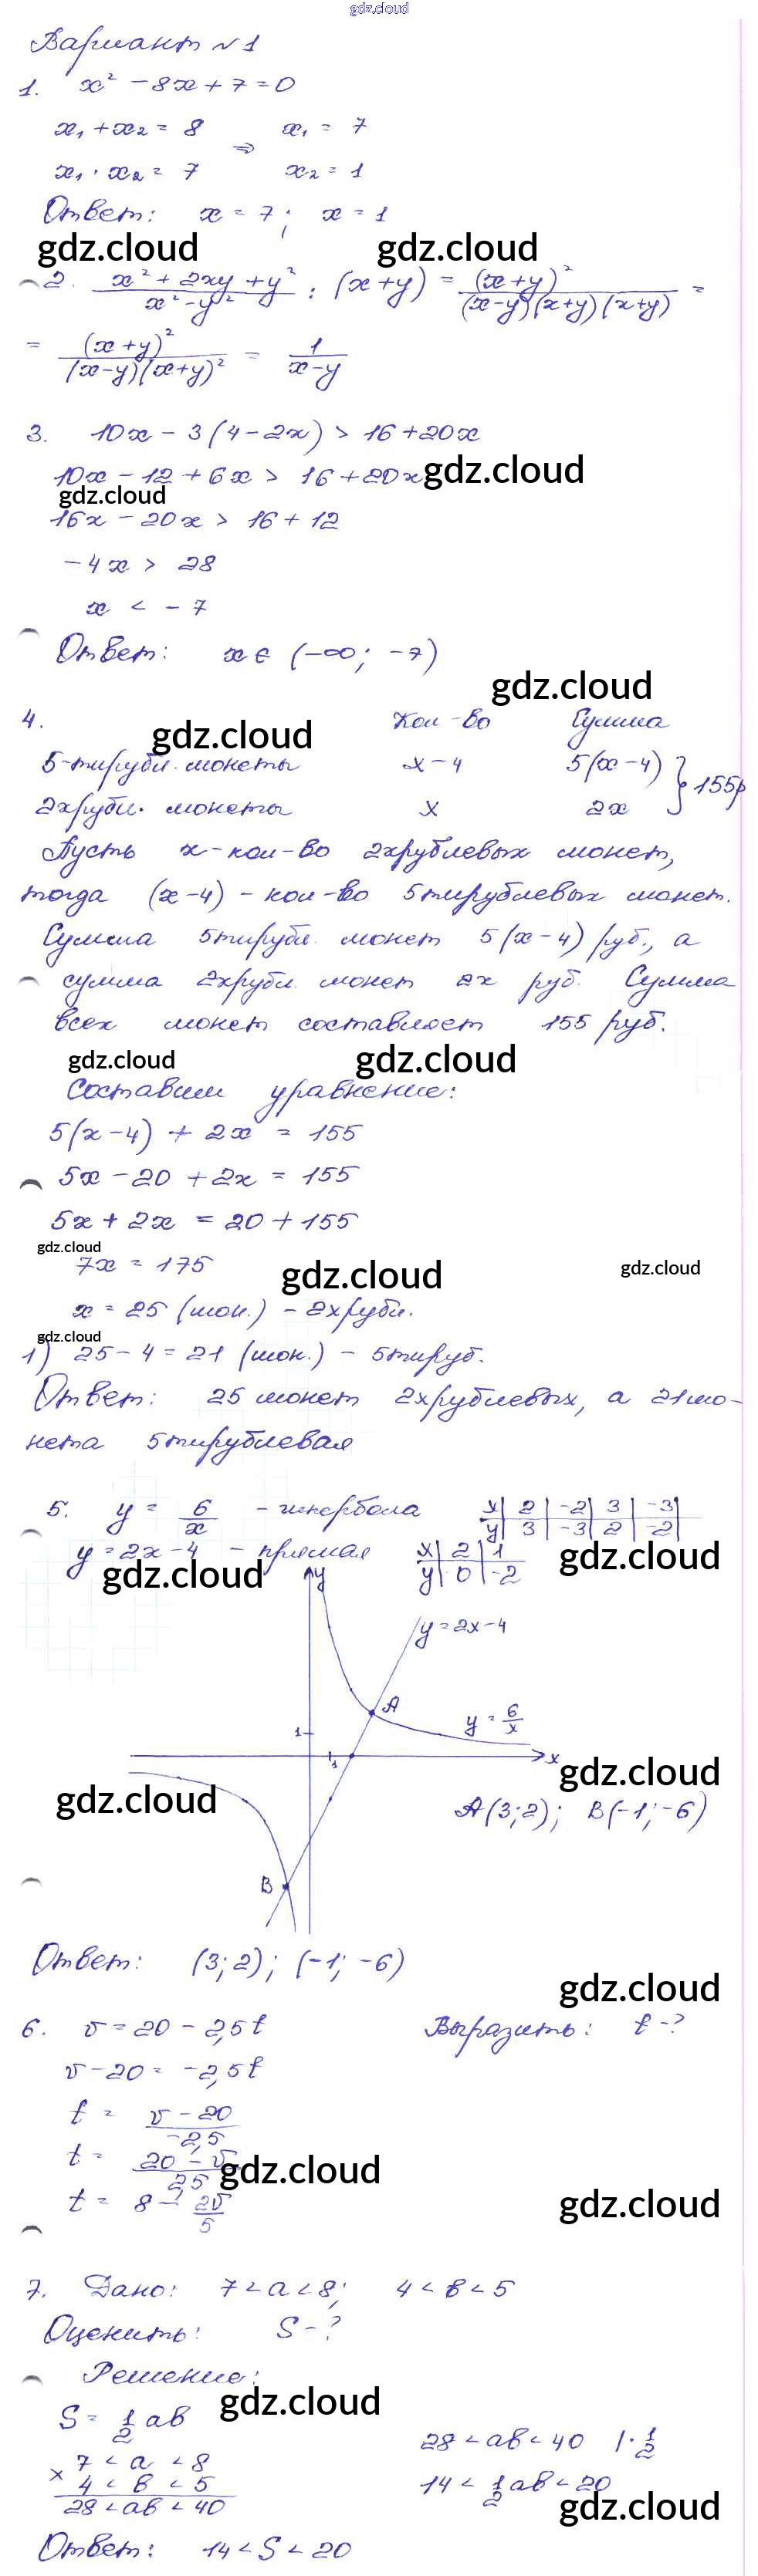 gdz.cloud
Вариант №1
1. x² - 8x + 7 = 0
x₁ + x₂ = 8 x₁ = 7
⇒
x₁ · x₂ = 7 x₂ = 1
Ответ: x = 7; x = 1
gdz.cloud gdz.cloud
2. (x² + 2xy + y²)/(x² - y²) : (x + y) = (x+y)²/((x-y)(x+y)(x+y)) =
= (x+y)²/((x-y)(x+y)²) = 1/(x-y)
3. 10x - 3(4 - 2x) > 16 + 20x
10x - 12 + 6x > 16 + 20x gdz.cloud
gdz.cloud
16x - 20x > 16 + 12
-4x > 28
x < -7
Ответ: x ∈ (-∞; -7)
gdz.cloud
4. gdz.cloud Кол-во Сумма
5-тирубл. монеты x-4 5(x-4) } 155р
2хрубл. монеты x 2x
Пусть x-кол-во 2хрублевых монет,
тогда (x-4) - кол-во 5тирублевых монет.
Сумма 5тирубл. монет 5(x-4) руб., а
сумма 2хрубл. монет 2x руб. Сумма
всех монет составляет 155 руб.
gdz.cloud gdz.cloud
Составим уравнение:
5(x-4) + 2x = 155
5x - 20 + 2x = 155
5x + 2x = 20 + 155
gdz.cloud
7x = 175 gdz.cloud gdz.cloud
x = 25 (мон.) - 2хрубл.
gdz.cloud
1) 25 - 4 = 21 (мон.) - 5тируб.
Ответ: 25 монет 2хрублевых, а 21мо-
нета 5тирублевая
5. y = 6/x - гипербола x | 2 | -2 | 3 | -3 |
y | 3 | -3 | 2 | -2 |
y = 2x - 4 - прямая x | 2 | 1
y | 0 | -2
gdz.cloud
gdz.cloud
y
y = 2x-4
A
y = 6/x
1
1
x
gdz.cloud
gdz.cloud
A(3;2); B(-1;-6)
B
Ответ: (3;2); (-1; -6)
gdz.cloud
6. v = 20 - 2,5t Выразить: t-?
v - 20 = -2,5t
t = (v - 20)/(-2,5)
t = (20 - v)/2,5 gdz.cloud
t = 8 - 2v/5
gdz.cloud
7. Дано: 7 < a < 8; 4 < b < 5
Оценить: S-?
Решение:
gdz.cloud
S = 1/2 ab
28 < ab < 40 | · 1/2
× 7 < a < 8
4 < b < 5
14 < 1/2 ab < 20
28 < ab < 40
gdz.cloud
Ответ: 14 < S < 20